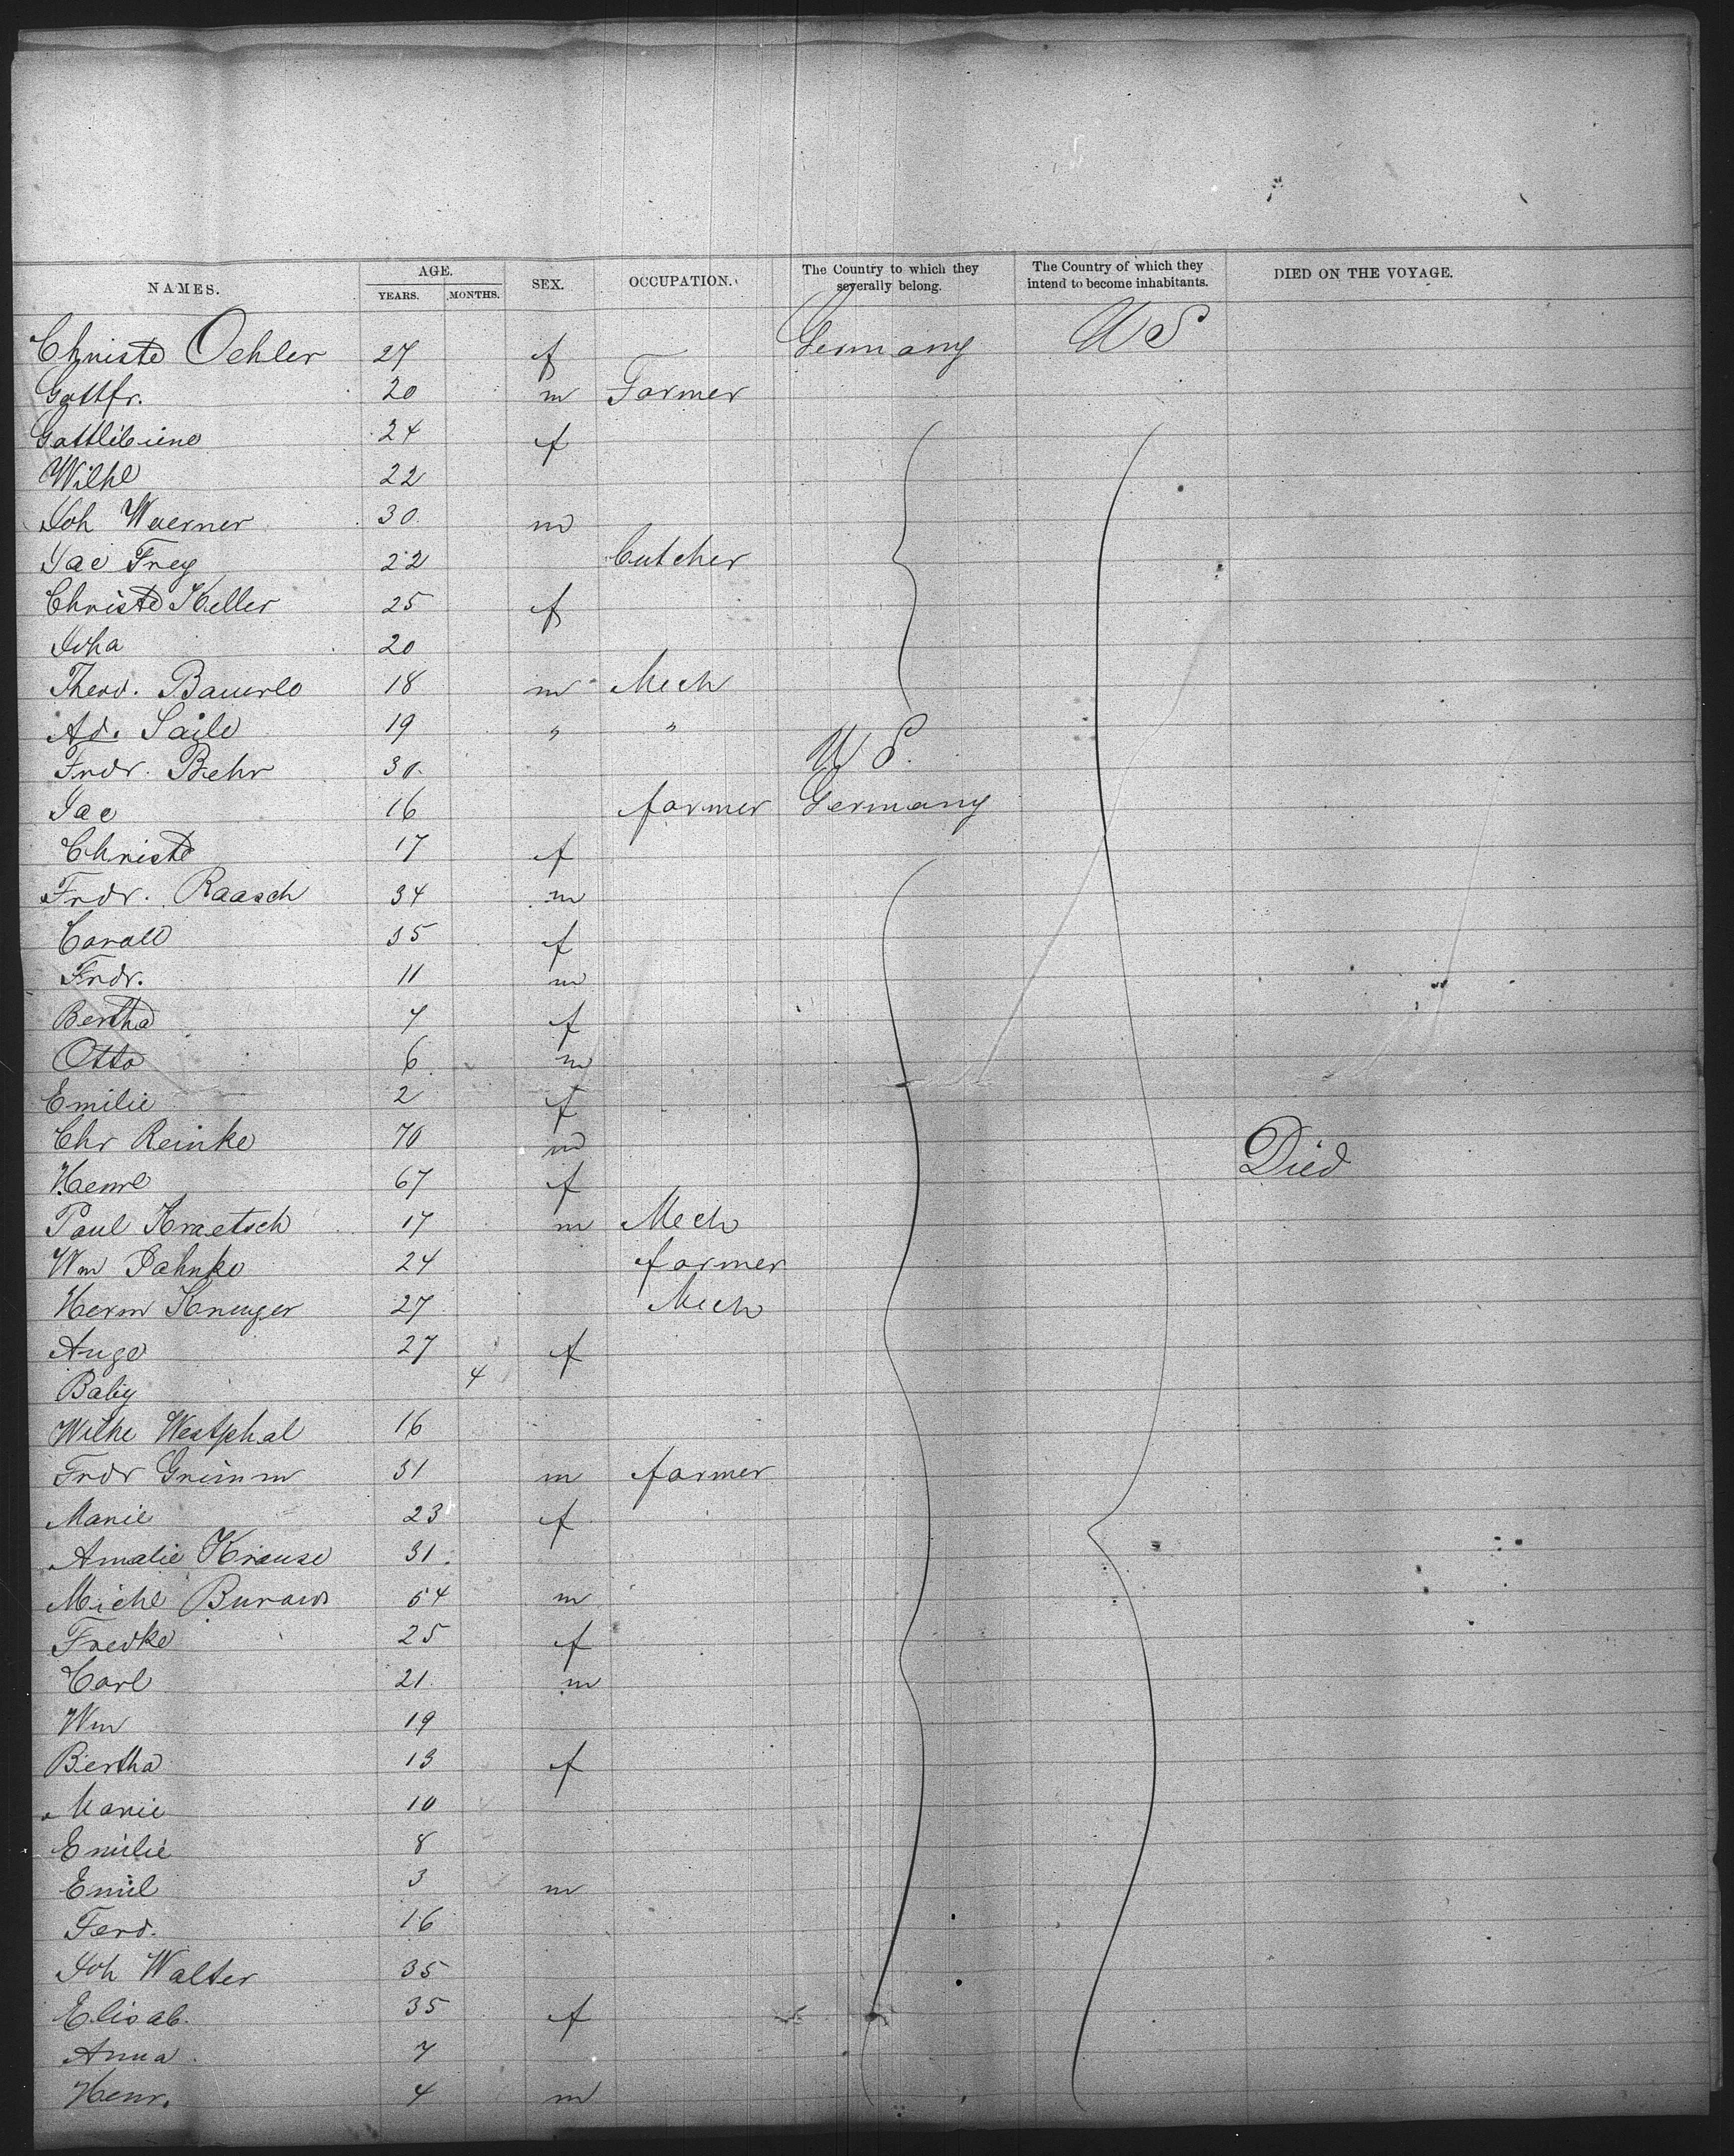 NAMES. AGE. YEARS. MONTHS. SEX. OCCUPATION. The Country to which they severally belong. The Country of which they intend to become inhabitants. DIED ON THE VOYAGE.
Christe Oehler 27 f Germany US
Gottfr. 20 m Farmer
Gottlibiene 24 f
Wilhe 22
Joh Woerner 30 m
Jac Frey 22 butcher
Christe Keller 25 f
Joha 20
Theod. Bauerle 18 m Mech
Ad. Saile 19 " "
Frdr. Behr 30 US.
Jac 16 farmer Germany
Christe 17 f
Frdr. Raasch 34 m
Carole 35 f
Frdr. 11 m
Bertha 7 f
Otto 6 m
Emilie 2 f
Chr Reinke 70 m Died
Henre 67 f
Paul Kraetsch 17 m Mech
Wm Pahnke 24 farmer
Herm Krueger 27 Mech
Auge 27 f
Baby 4
Wilhe Westphal 16
Frdr Grimm 31 m farmer
Marie 23 f
Amalie Krause 31
Michl Burow 54 m
Fredke 25 f
Carl 21 m
Wm 19
Bertha 13 f
Marie 10
Emilie 8
Emil 3 m
Ferd. 16
Joh Walter 35
Elisab. 35 f
Anna 7
Henr. 4 m